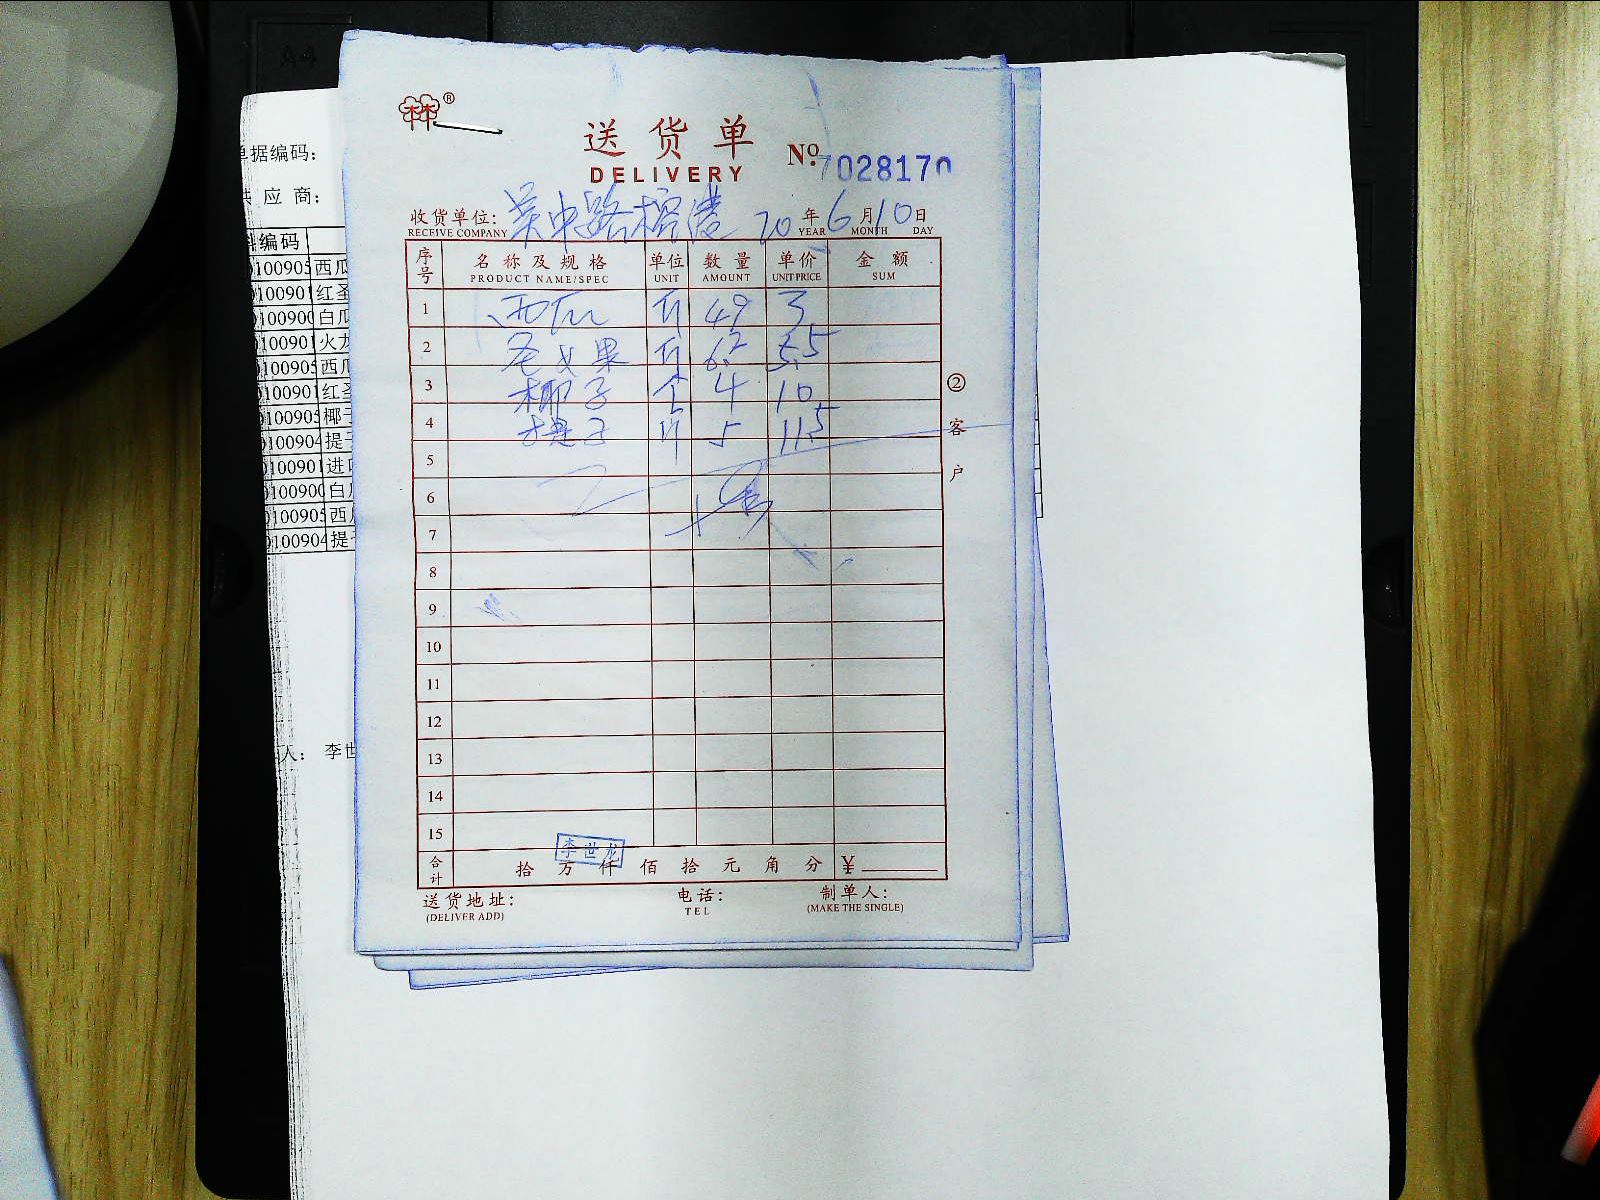 A4
单据编码：
供 应 商：
编码
0100905 西瓜
0100901 红圣
0100900 白瓜
0100901 火龙
0100905 西瓜
0100901 红圣
0100905 椰子
0100904 提子
0100901 进口
0100900 白瓜
0100905 西瓜
0100904 提子
人： 李世
林林®
送 货 单
DELIVERY
No. 7028170
收货单位： 吴中路 20 年 6 月 10 日
RECEIVE COMPANY YEAR MONTH DAY
序号 名 称 及 规 格 单位 数 量 单价 金 额
PRODUCT NAME/SPEC UNIT AMOUNT UNIT PRICE SUM
1 西瓜 斤 49 3
2 圣女果 斤 6.2 5.5
3 椰子 个 4 10
4 提子 斤 5 11.5
5
6
7
8
9
10
11
12
13
14
15
② 客 户
李世龙
合计 拾 万 仟 佰 拾 元 角 分 ¥
送货地址： 电话： 制单人：
(DELIVER ADD) TEL (MAKE THE SINGLE)